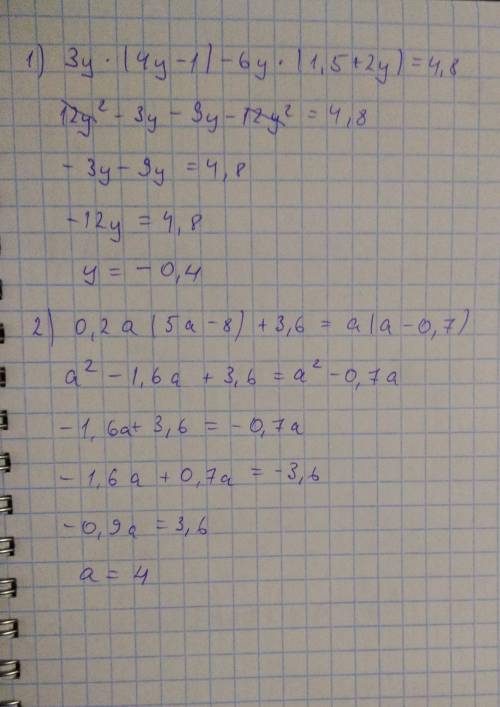 1) 3y · (4y - 1) - 6y · (1,5 + 2y) = 4,8
12y² - 3y - 9y - 12y² = 4,8
- 3y - 9y = 4,8
-12y = 4,8
y = - 0,4
2) 0,2a (5a - 8) + 3,6 = a(a - 0,7)
a² - 1,6a + 3,6 = a² - 0,7a
- 1,6a + 3,6 = - 0,7a
- 1,6a + 0,7a = -3,6
- 0,9a = 3,6
a = 4